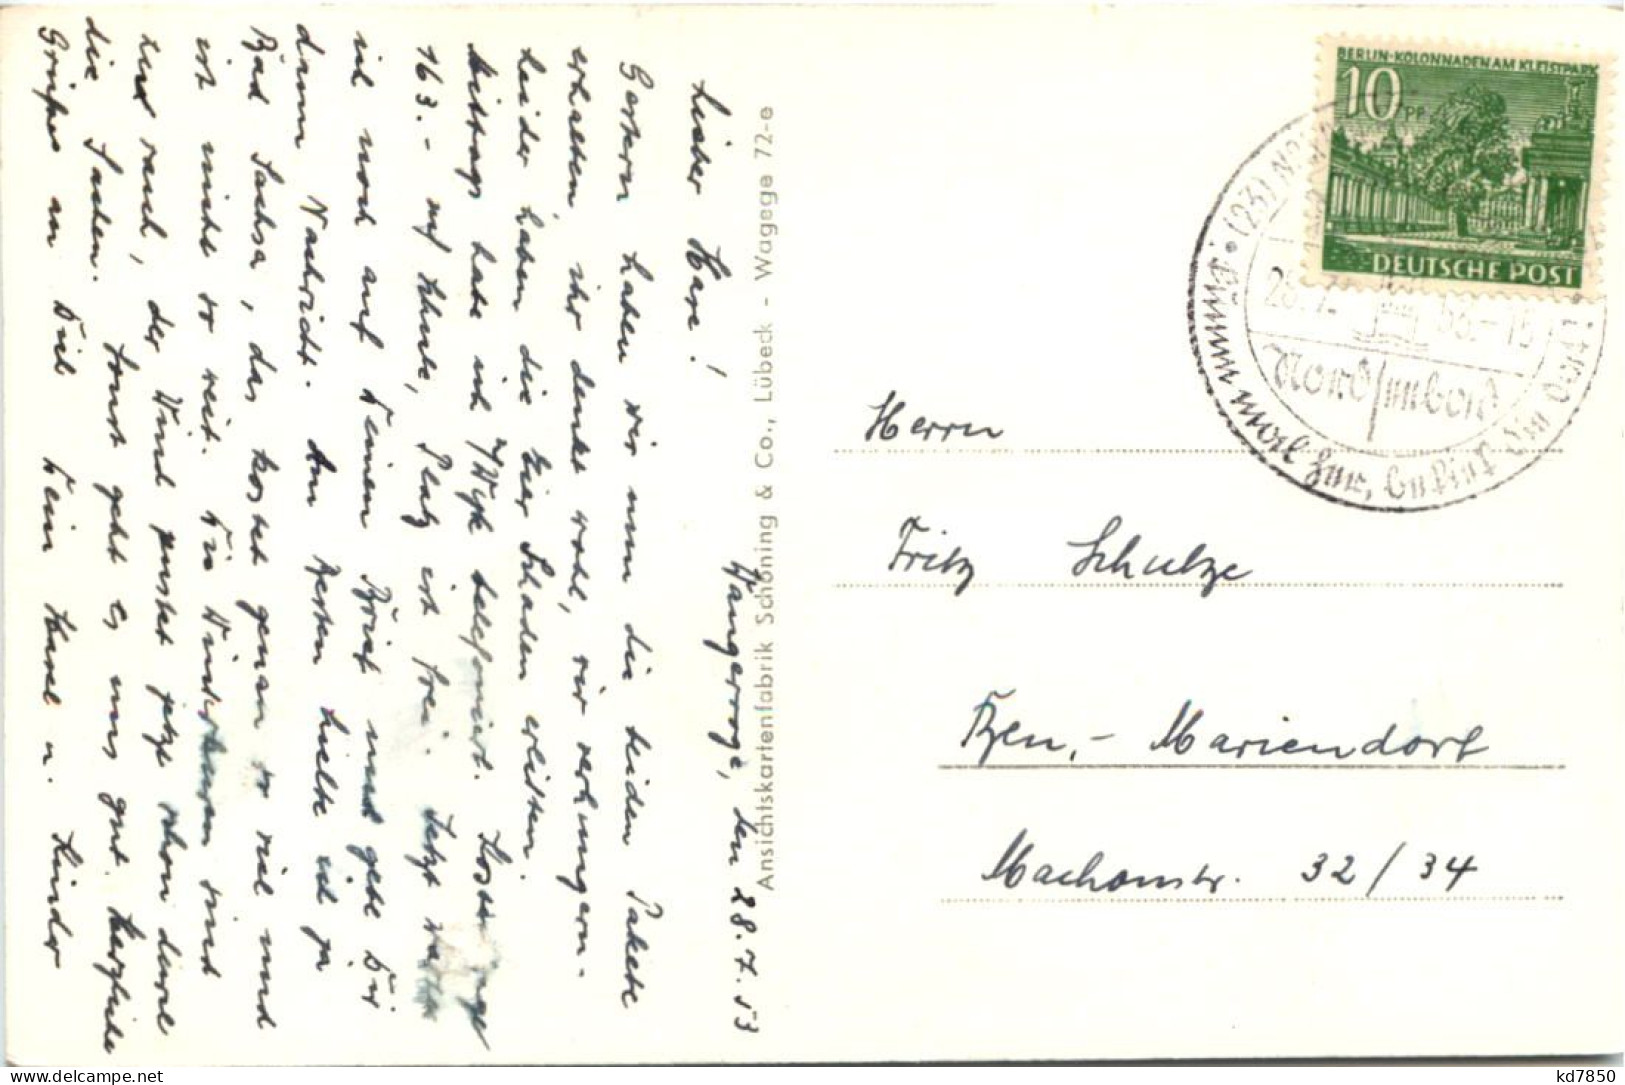 Wangerooge, den 28.7.53
Lieber Hase!
Gestern haben wir nun die beiden Pakete
erhalten, ihr denkt wohl, wir verhungern.
Leider haben die Eier Schaden erlitten.
Mittags habe ich m/Wyk telefoniert.
163.- auf Hütte, Platz ist frei. Jetzt warte
ich noch auf Deinen Brief und gebe Dir
dann Nachricht. Am besten hielte ich ja
Bad Sachsa, das kostet genau so viel und
ist nicht so weit. Die Kinder sind
und rauh, der Wind pustet jetzt schon durch
die Sachen. Sonst geht es uns gut. Herzliche
Grüsse an Dich Dein Hasel u. Kinder
Ansichtskartenfabrik Schöning & Co., Lübeck - Wagege 72-e
BERLIN-KOLONNADEN AM KLEISTPARK
10 PF
DEUTSCHE POST
(23) NO
28.7. 53.-15
Nordseebad
Nimm mal Zur, besinnst Du Dort!
Herrn
Fritz Schulze
Bln.- Mariendorf
Machonstr. 32/34
kd7850